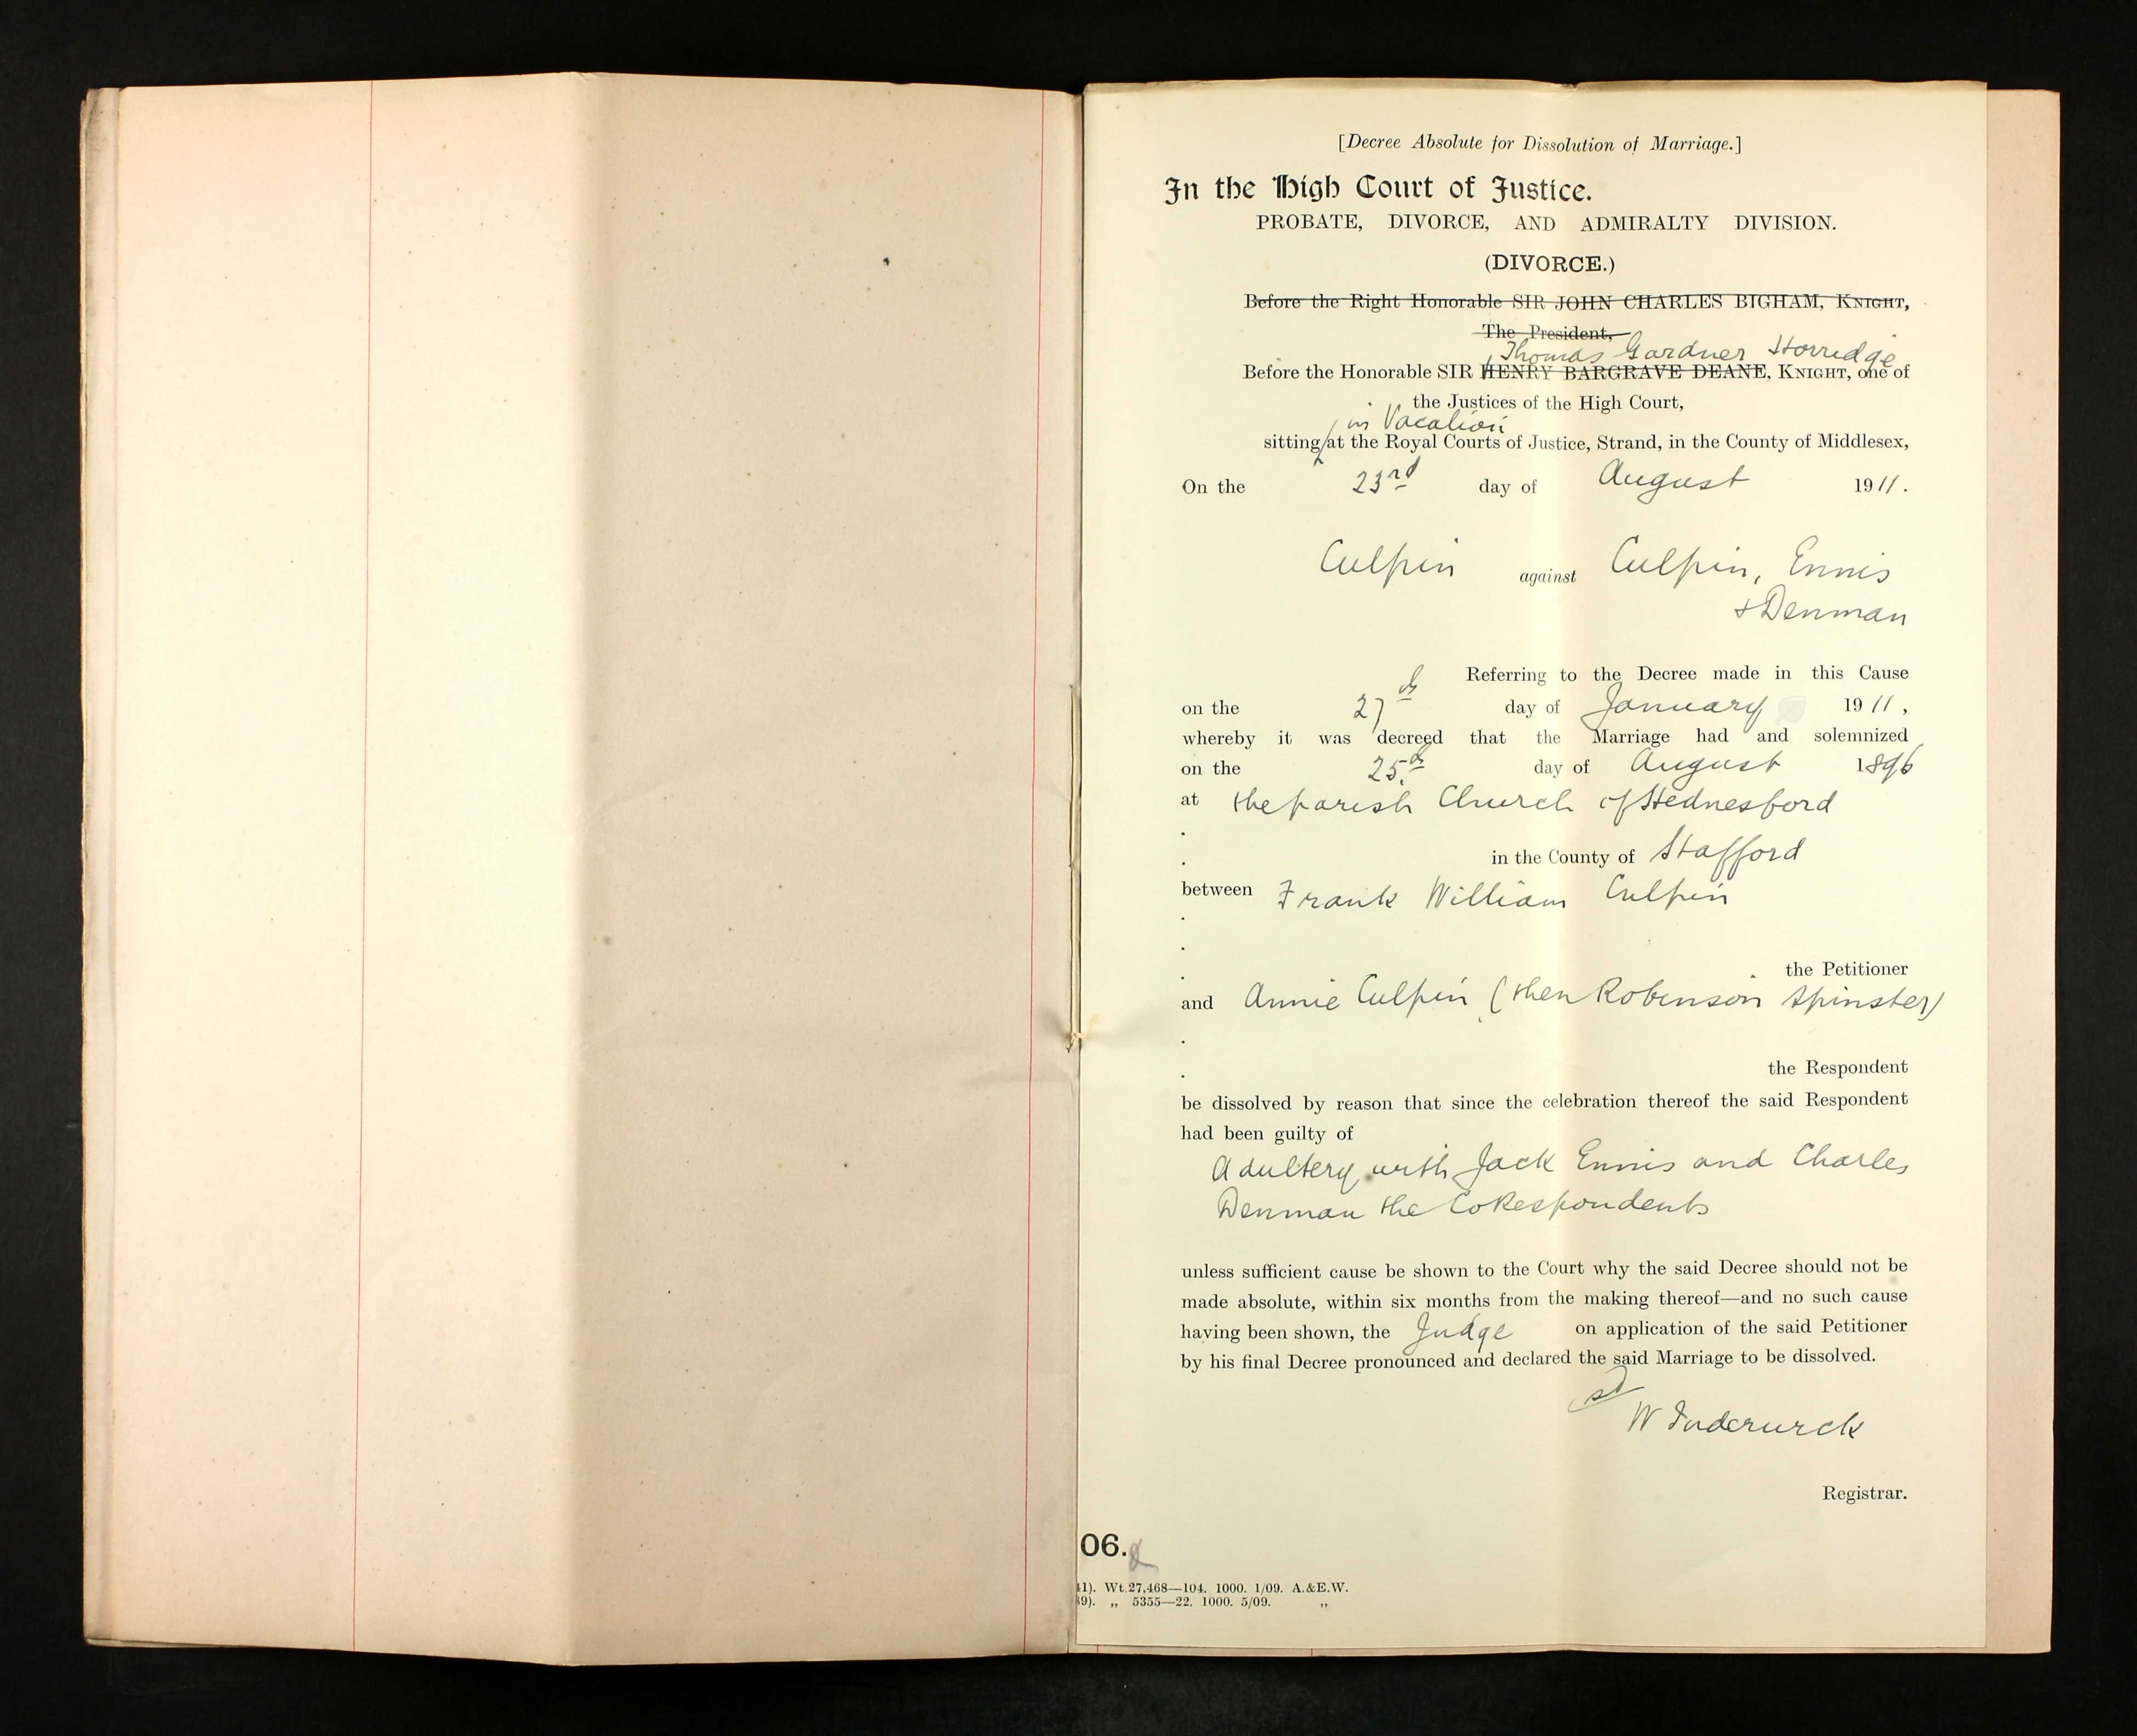 [Decree Absolute for Dissolution of Marriage.]
In the High Court of Justice.
PROBATE, DIVORCE, AND ADMIRALTY DIVISION.
(DIVORCE.)
Before the Right Honorable SIR JOHN CHARLES BIGHAM, KNIGHT,
The President,
Thomas Gardner Horridge
Before the Honorable SIR HENRY BARGRAVE DEANE, KNIGHT, one of
the Justices of the High Court,
in Vacation
sitting at the Royal Courts of Justice, Strand, in the County of Middlesex,
On the 23rd day of August 1911.
Culpin against Culpin, Ennis
& Denman
Referring to the Decree made in this Cause
on the 27th day of January 1911,
whereby it was decreed that the Marriage had and solemnized
on the 25th day of August 1896
at the parish Church of Hednesford
in the County of Stafford
between Frank William Culpin
the Petitioner
and Annie Culpin (then Robinson Spinster)
the Respondent
be dissolved by reason that since the celebration thereof the said Respondent
had been guilty of
Adultery with Jack Ennis and Charles
Denman the CoRespondents
unless sufficient cause be shown to the Court why the said Decree should not be
made absolute, within six months from the making thereof—and no such cause
having been shown, the Judge on application of the said Petitioner
by his final Decree pronounced and declared the said Marriage to be dissolved.
W
Registrar.
06.
1). Wt.27,468—104. 1000. 1/09. A.&E.W.
9). „ 5355—22. 1000. 5/09. „